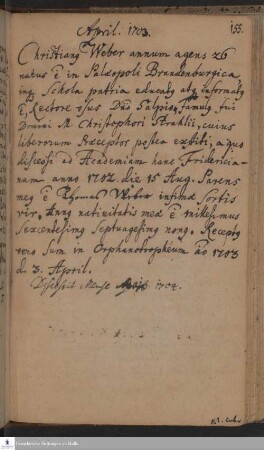 April. 1703.
155.
Christianus Weber annum agens 26
natus ē in Palæopoli Brandenburgica,
inque Schola patria educatus atque informatus
ē, Rectore usus Dno famulus fui
Domini M. Christophori Strahlii, cuius
liberorum Præceptor postea extiti, a quo
discessi ad Academiam hanc Fridericia-
nam anno 1702 die 15 Aug. Parens
meus ē Thomas Weber infimæ sortis
vir, Annus nativitatis meæ ē millesimus
sexcentesimus septuagesimus nonus. Receptus
vero sum in Orphanotropheum ao 1703
d. 3. April.
Discessit Mense 1704.